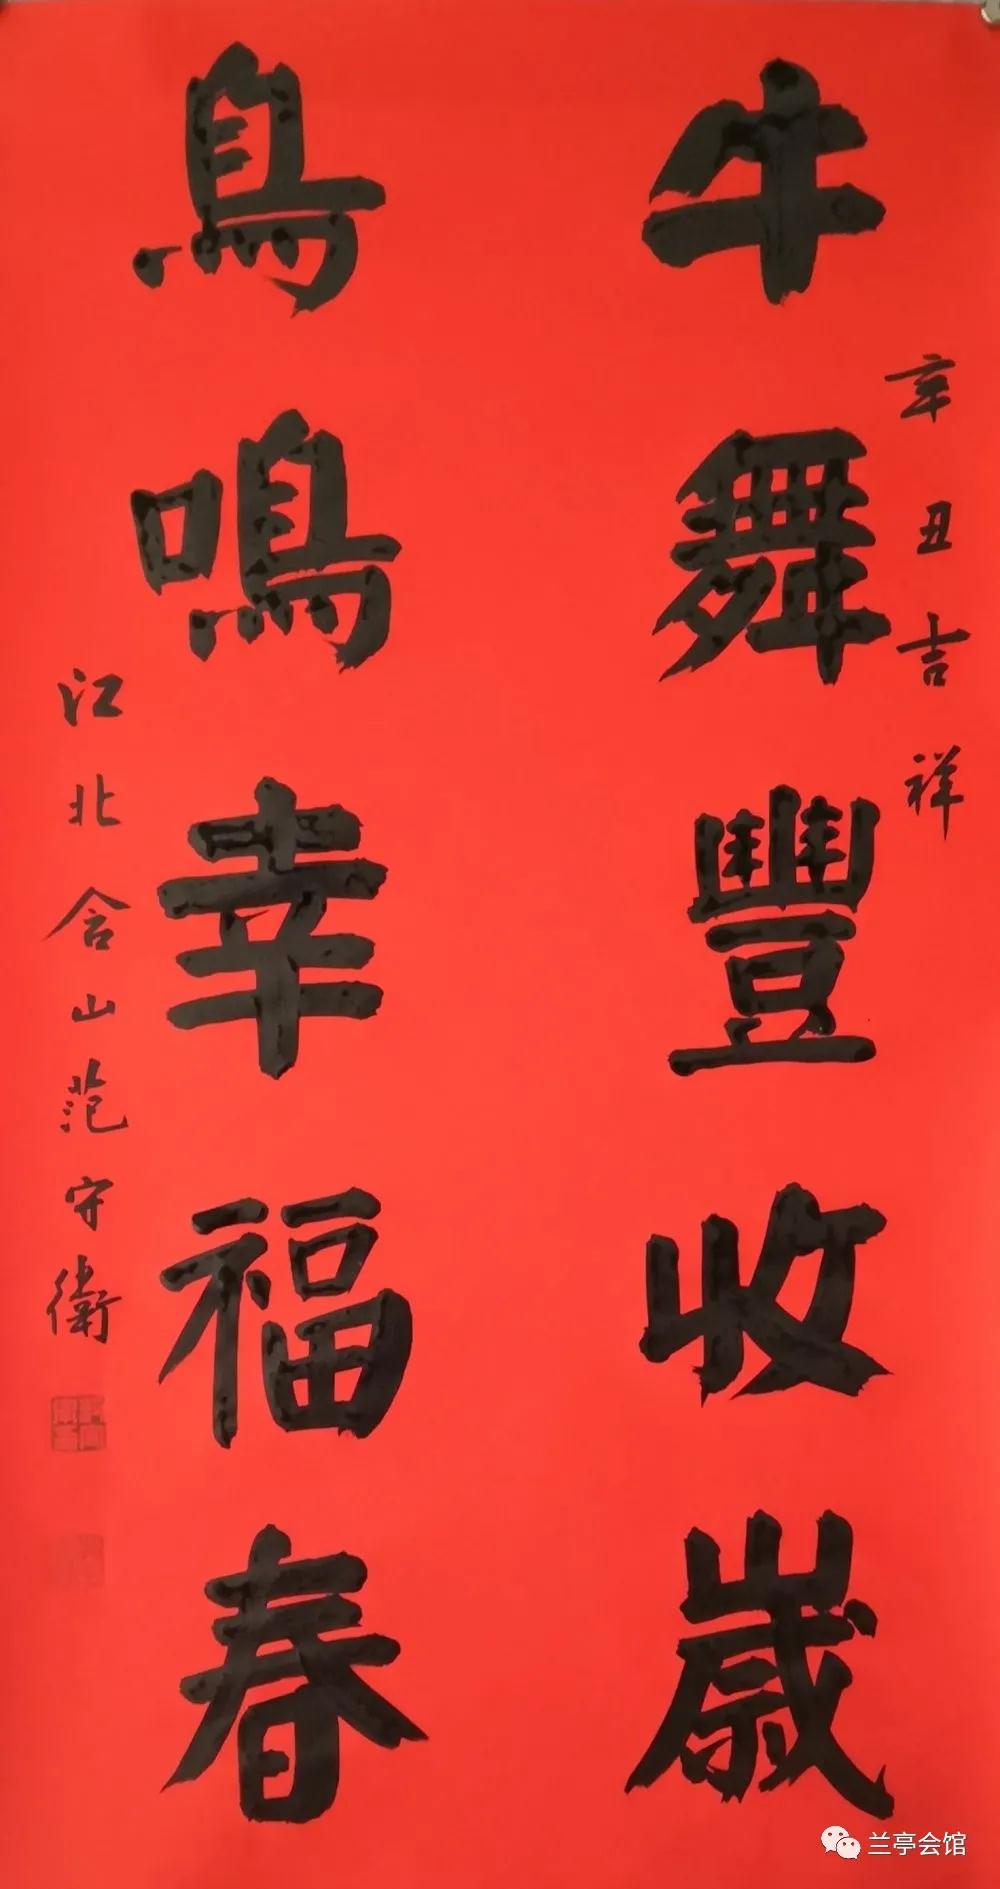 辛丑吉祥
牛舞豐收歲
鳥鳴幸福春
江北含山范守衛
兰亭会馆